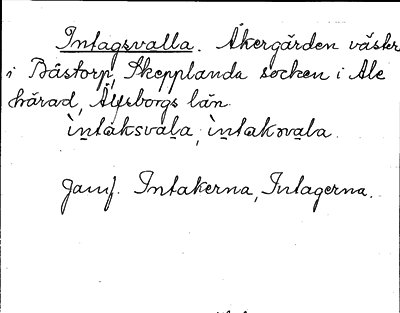 Intagsvalla. Åkergärden väster
i Båstorp, Skepplanda socken i Ale
härad, Älfsborgs län.
ìntàksvala, ìntakvala.
Jamf. Intakerna, Intagerna.